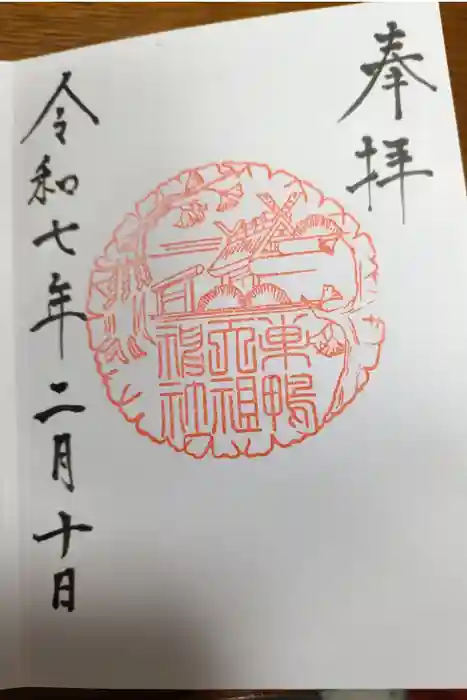 奉拝
東鴨
天祖
神社
令和七年二月十日